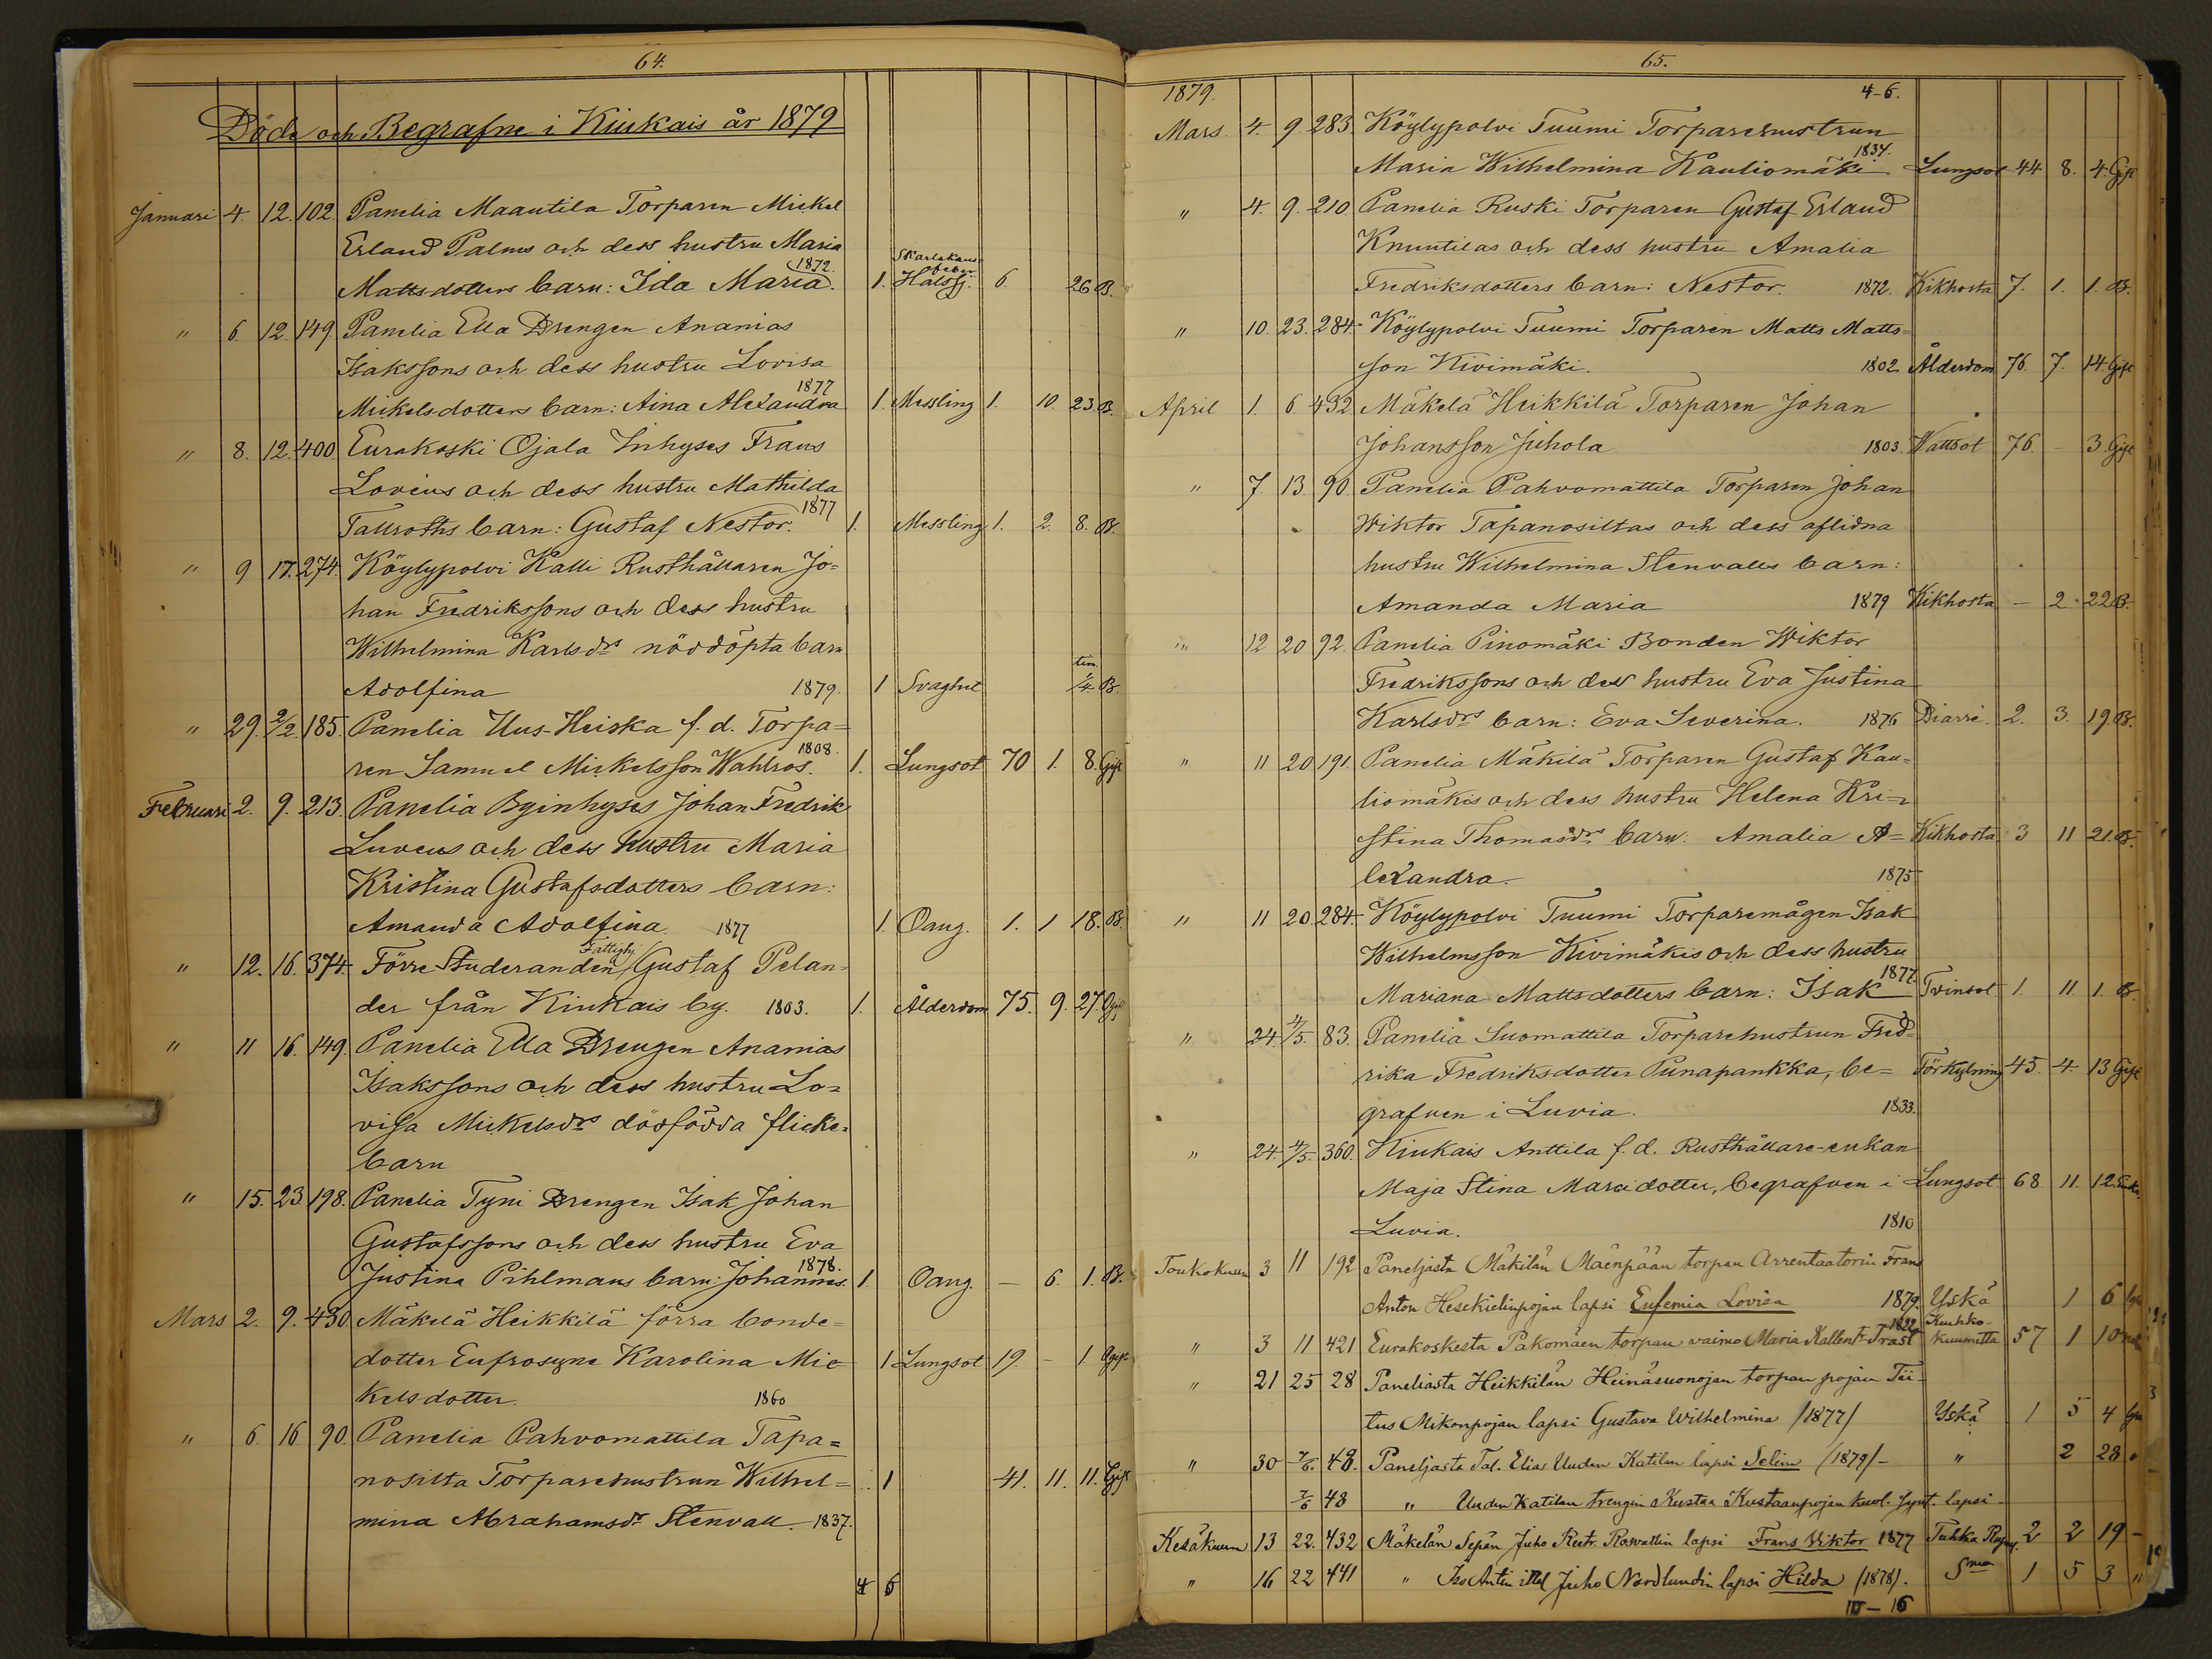 64.
Döde och Begrafne i Kiukais år 1879
Januari 4. 12. 102 Panelia Maantila Torparen Mickel
Erland Palmus och dess hustru Maria
Mattsdotters barn: Ida Maria. 1872. 1. Skarlakans feber. Halssj. 6. 26 B.
" 6. 12. 149. Panelia Ella Drengen Ananias
Isakssons och dess hustru Lovisa
Mickelsdotters barn: Aina Alexandra 1877 1. Messling 1. 10. 23. B.
" 8. 12. 400. Eurakoski Ojala Inhyses Frans
Lovens och dess hustru Mathilda
Tallroths barn: Gustaf Nestor. 1877 1. Messling 1. 2. 8. B.
" 9 17. 274. Köylypolvi Kalli Rusthållaren Jo=
han Fredrikssons och dess hustru
Wilhelmina Karlsdrs nöddöpta barn
Adolfina 1879. 1 Svaghet tim. 1/4. B.
" 29. 2/2. 185. Panelia Uus-Heiska f. d. Torpa=
ren Samuel Mickelsson Wahlros. 1808. 1. Lungsot 70 1. 8. Gift
Februari 2. 9. 213. Panelia Byinhyses Johan Fredrik
Luvens och dess hustru Maria
Kristina Gustafsdotters barn:
Amanda Adolfina. 1877 1. Oang. 1. 1 18. B.
" 12. 16. 374. Förre Studeranden Fattighj Gustaf Pelan=
der från Kiukais by. 1803. 1. Ålderdom 75. 9. 27. Ogift
" 11 16. 149. Panelia Ella Drengen Ananias
Isakssons och dess hustru Lo=
visa Mickelsdrs dödfödda flicke=
barn
" 15. 23 198. Panelia Tyni Drengen Isak Johan
Gustafssons och dess hustru Eva
Justina Pihlmans barn: Johannes. 1878. 1. Oang. — 6. 1. B.
Mars 2. 9. 430 Mäkelä Heikkilä förra bonde=
dotter Eufrosyne Karolina Mic 1 Lungsot 19. - 1 Ogift
kelsdotter. 1860
" 6. 16 90. Panelia Pahvomattila Tapa=
nosilta Torparehustrun Wilhel= 1 41. 11. 11. Gift
mina Abrahamsdr Stenvall. 1837.
4 6
65.
1879. 4-6.
Mars 4. 9. 283 Köylypolvi Tuumi Torparehustrun
Maria Wilhelmina Kauliomäki 1834. Lungsot 44 8. 4. Gift
" 4. 9. 210 Panelia Ruski Torparen Gustaf Erland
Knuutilas och dess hustru Amalia
Fredriksdotters barn: Nestor. 1872. Kikhosta 7. 1. 1. B.
" 10. 23. 284. Köylypolvi Tuumi Torparen Matts Matts=
son Kivimäki. 1802. Ålderdom 76. 7. 14 Gift
April 1. 6 432 Mäkelä Heikkilä Torparen Johan
Johansson Juhola 1803. Wattsot 76. — 3. Gift
" 7. 13. 90 Panelia Pahvomattila Torparen Johan
Wiktor Tapanosiltas och dess aflidna
hustru Wilhelmina Stenvalls barn:
Amanda Maria 1879 Kikhosta — 2. 22 B.
" 12 20 92. Panelia Pinomäki Bonden Wiktor
Fredrikssons och dess hustru Eva Justina
Karlsdrs barn: Eva Severina. 1876 Diarré. 2. 3. 19 B.
" 11 20 191. Panelia Mäkilä Torparen Gustaf Kau=
liomäkis och dess hustru Helena Kri=
stina Thomasdrs barn: Amalia A= Kikhosta. 3 11 21. B.
lexandra. 1875
" 11 20. 284. Köylypolvi Tuumi Torparemågen Isak
Wilhelmsson Kivimäkis och dess hustru
Mariana Mattsdotters barn: Isak 1877. Tvinsot 1. 11. 1. B.
" 24. 4/5. 83. Panelia Suomattila Torparehustrun Fred=
rika Fredriksdotter Punapankka, be= Förkylning 45. 4. 13 Gift
grafven i Luvia. 1833.
" 24. 4/5. 360. Kiukais Anttila f. d. Rusthållare-enkan
Maja Stina Marcidotter, begrafven i Lungsot. 68. 11. 12 Enk.
Luvia. 1810
Toukokuun 3 11 192 Paneljasta Mäkilän Mäenpään torpan Arrentaatorin Frans
Anton Hesekielinpojan lapsi Eufemia Lovisa 1879. Yskä 1 6
" 3 11 421 Eurakoskesta Pakomäen torpan vaimo Maria Kallent. Trast 1822 Keuhko-kuumetta 57 1 10
" 21 25 28 Paneliasta Heikkilän Heinäsuonojan torpan pojan Tii-
tus Mikonpojan lapsi Gustava Wilhelmina /1877/ Yskä 1 5 4
" 30 7/6. 48. Paneljasta Tal. Elias Uuden Katilan lapsi Selim (1879/- " 2 28
7/6 48 " Uuden Katilan trengin Kustaa Kustaanpojan kuol. synt. lapsi
Kesäkuun 13 22. 432 Mäkelän Sepän Juho Rostr. Roswallin lapsi Frans Viktor 1877 Tuhka 2 2 19 -
" 16 22 441 " Iso Antin ittel Juho Nordlundin lapsi Hilda (1878). Sma 1 5 3 "
10 — 16